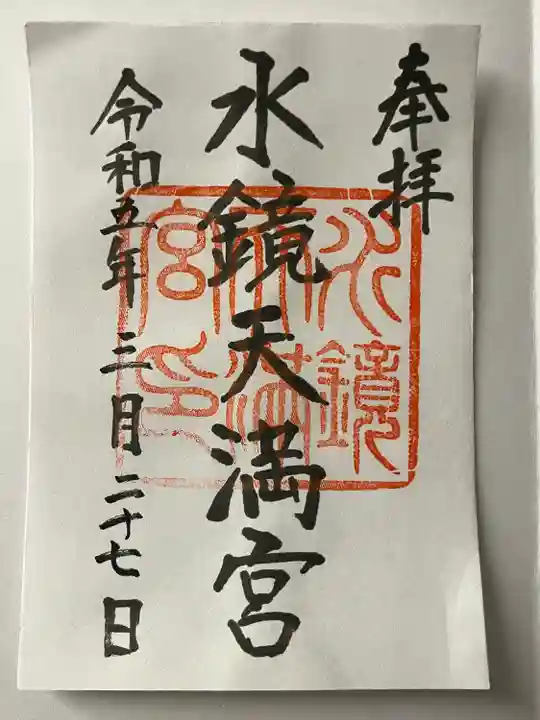 奉拝
水鏡天満宮
水鏡天満宮印
令和五年三月二十七日